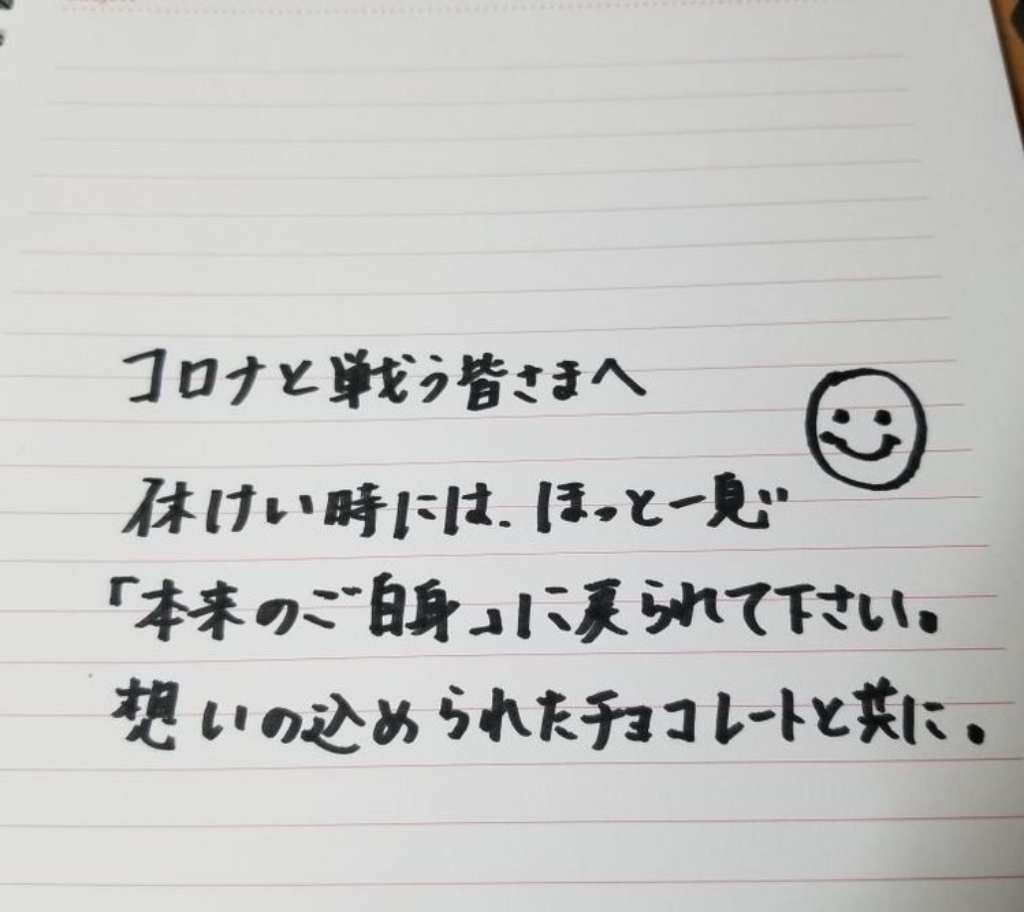 コロナと戦う皆さまへ
休けい時には、ほっと一息
「本来のご自身」に戻られて下さい。
想いの込められたチョコレートと共に。